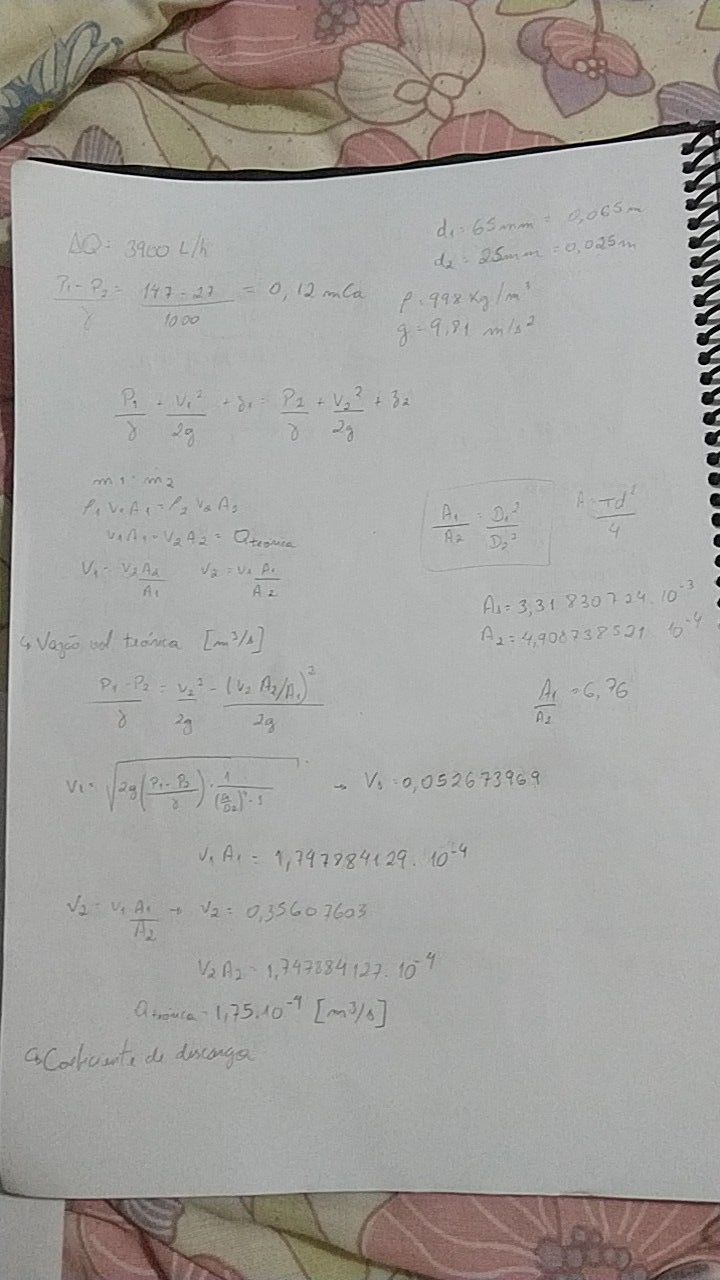 ΔQ = 3900 L/h
d₁ = 65mm = 0,065m
d₂ = 25mm = 0,025m
(P₁ - P₂)/γ = (147 - 27)/1000 = 0,12 mCa
ρ = 998 kg/m³
g = 9,81 m/s²
P₁/γ + V₁²/2g + z₁ = P₂/γ + V₂²/2g + z₂
ṁ₁ = ṁ₂
ρ₁ V₁ A₁ = ρ₂ V₂ A₂
V₁A₁ = V₂A₂ = Qteórica
V₁ = V₂A₂/A₁ V₂ = V₁ A₁/A₂
A₁/A₂ = D₁²/D₂²
A = πd²/4
A₁ = 3,31830724.10⁻³
A₂ = 4,908738521.10⁻⁴
A₁/A₂ = 6,76
↳ Vazão vol teórica [m³/s]
(P₁ - P₂)/γ = V₂²/2g - (V₂ A₂/A₁)²/2g
→ V₁ = 0,052673969
V₁A₁ = 1,747884129.10⁻⁴
V₂ = V₁ A₁/A₂ → V₂ = 0,35607603
V₂A₂ = 1,747884127.10⁻⁴
Qteórica = 1,75.10⁻⁴ [m³/s]
↳ Coeficiente de descarga